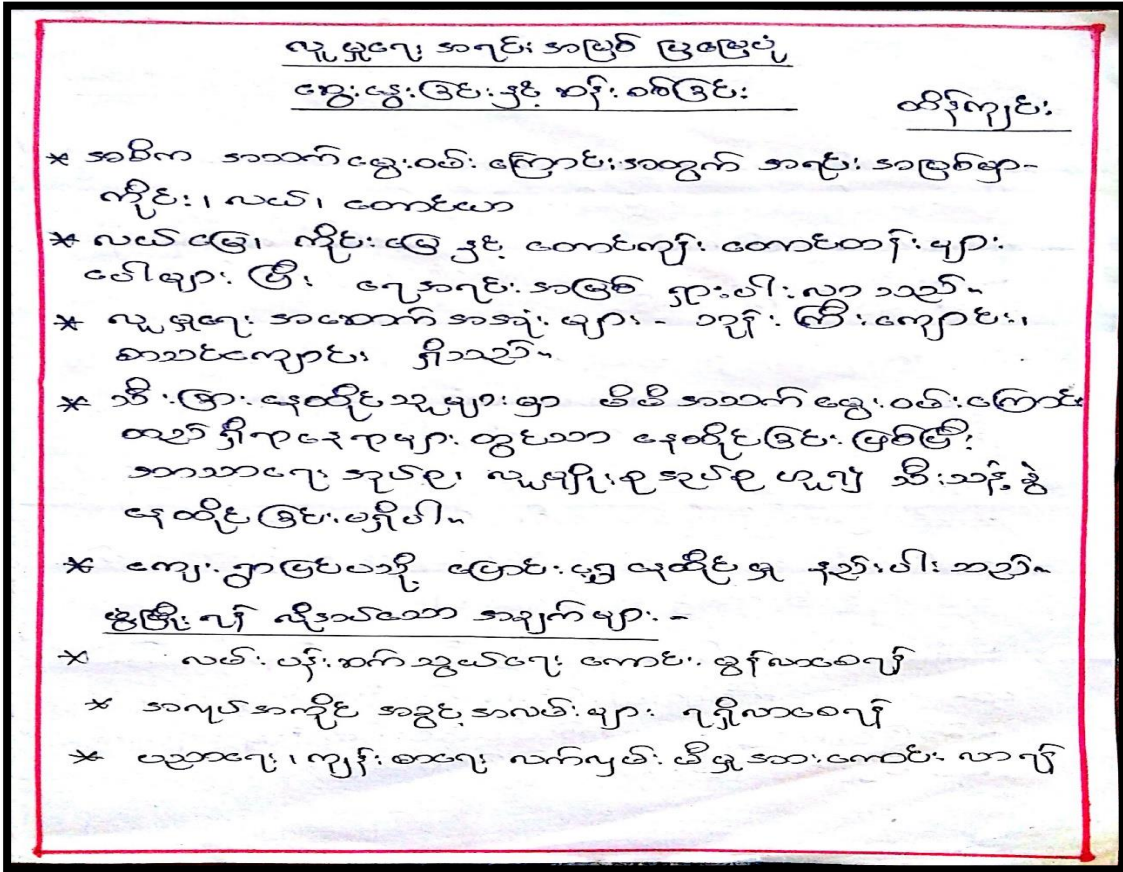 လူမှုရေး အရင်းအမြစ် ပြမြေပုံ
ဆွေးနွေးခြင်းနှင့် ဆန်းစစ်ခြင်း
ထိန်ကျင်း
* အဓိက အသက်မွေးဝမ်းကြောင်းအတွက် အရင်းအမြစ်မှာ-
ကိုင်း၊ လယ်၊ တောင်ယာ
* လယ်မြေ၊ ကိုင်းမြေနှင့် တောင်ကုန်း တောင်တန်းများ
ပေါများပြီး ရေအရင်းအမြစ် ရှားပါးလာသည်။
* လူမှုရေး အဆောက်အအုံများ - ဘုန်းကြီးကျောင်း၊
စာသင်ကျောင်း ရှိသည်။
* သီးခြားနေထိုင်သူများမှာ မိမိအသက်မွေးဝမ်းကြောင်း
တည်ရှိရာနေရာများတွင်သာ နေထိုင်ခြင်းဖြစ်ပြီး
ဘာသာရေးအုပ်စု၊ လူမျိုးစုအုပ်စုဟူ၍ သီးသန့်ခွဲ
နေထိုင်ခြင်းမရှိပါ။
* ကျေးရွာပြင်ပသို့ ပြောင်းရွှေ့နေထိုင်မှု နည်းပါးသည်။
ဖွံ့ဖြိုးရန် လိုအပ်သော အချက်များ -
* လမ်းပန်းဆက်သွယ်ရေး ကောင်းမွန်လာစေရန်
* အလုပ်အကိုင် အခွင့်အလမ်းများ ရရှိလာစေရန်
* ပညာရေး၊ ကျန်းမာရေး လက်လှမ်းမီမှုအားကောင်းလာရန်